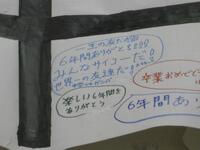 一生の友だちだ
6年間ありがとう
みんなサイコーだ
世界一の友達だ
楽しい6年間を
ありがとう
卒業おめで
6年間あ